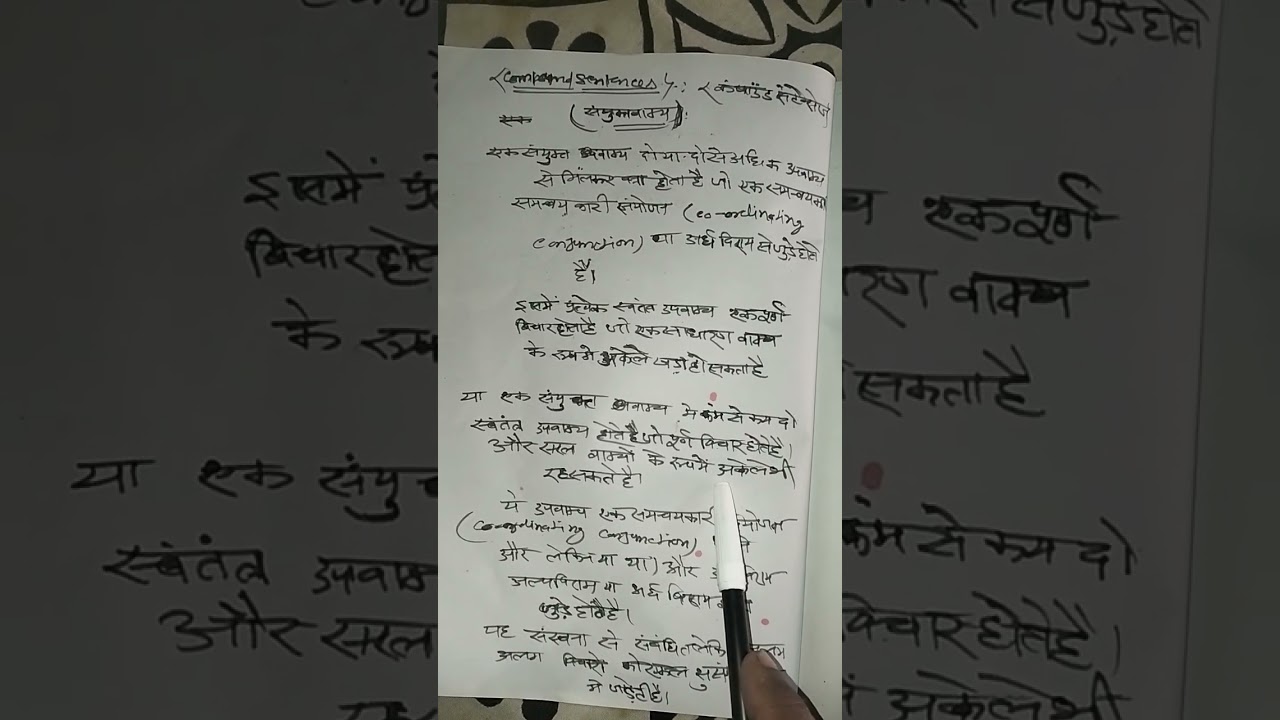 Compound Sentences :: कंपाउंड सेंटेंसेज
एक (संयुक्तवाक्य):
एक संयुक्त वाक्य दो या दो से अधिक उपवाक्य
से मिलकर बना होता है जो एक
समन्वयकारी संयोजन (co-ordinating
conjunction) या अर्ध विराम से जुड़े होते
हैं।
इसमें प्रत्येक स्वतंत्र उपवाक्य एक पूर्ण
विचार होता है जो एक साधारण वाक्य
के रूप में अकेले खड़ा हो सकता है
या एक संयुक्त वाक्य में कम से कम दो
स्वतंत्र उपवाक्य होते है जो पूर्ण विचार होते है।
और सरल वाक्यों के रूप में अकेले भी
रह सकते है।
ये उपवाक्य एक समन्वयकारी
(co-ordinating conjunction)
और लेकिन या या) और
अल्पविराम या अर्ध विराम
जुड़े होते है।
यह संरचना से संबंधित लेकिन
अलग विचारो को
में जोड़ती है।